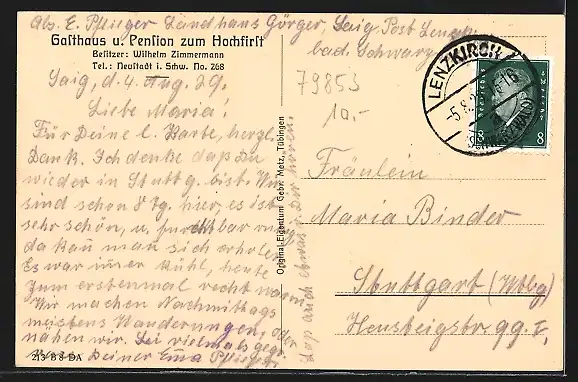 Abs. E. Pflieger Landhaus Görger, Saig, Post Lenzk.
bad. Schwarzw.
Gasthaus u. Pension zum Hochfirst
Besitzer: Wilhelm Zimmermann
Tel.: Neustadt i. Schw. No. 268
Saig, d. 4. Aug. 29.
Liebe Maria!
Für Deine l. Karte, herzl.
Dank. Ich denke daß Du
wieder in Stuttg. bist. Wir
sind schon 8 Tg. hier, es ist
sehr schön, u. furchtbar
da kan̄ man sich erholen.
Es war im̄er kühl, heute
zum erstenmal recht warm.
Wir machen Nachmittags
meistens Wanderungen, oder
nähen wir. Sei vielmals gegr.
Deiner Em̄a Pflieger
213 B 8 DA
Original-Eigentum Gebr. Metz, Tübingen
79853
10.-
LENZKIRCH
-5.8.
(SCHWARZWALD)
8 8
Fräulein
Maria Binder
Stuttgart (Wbg)